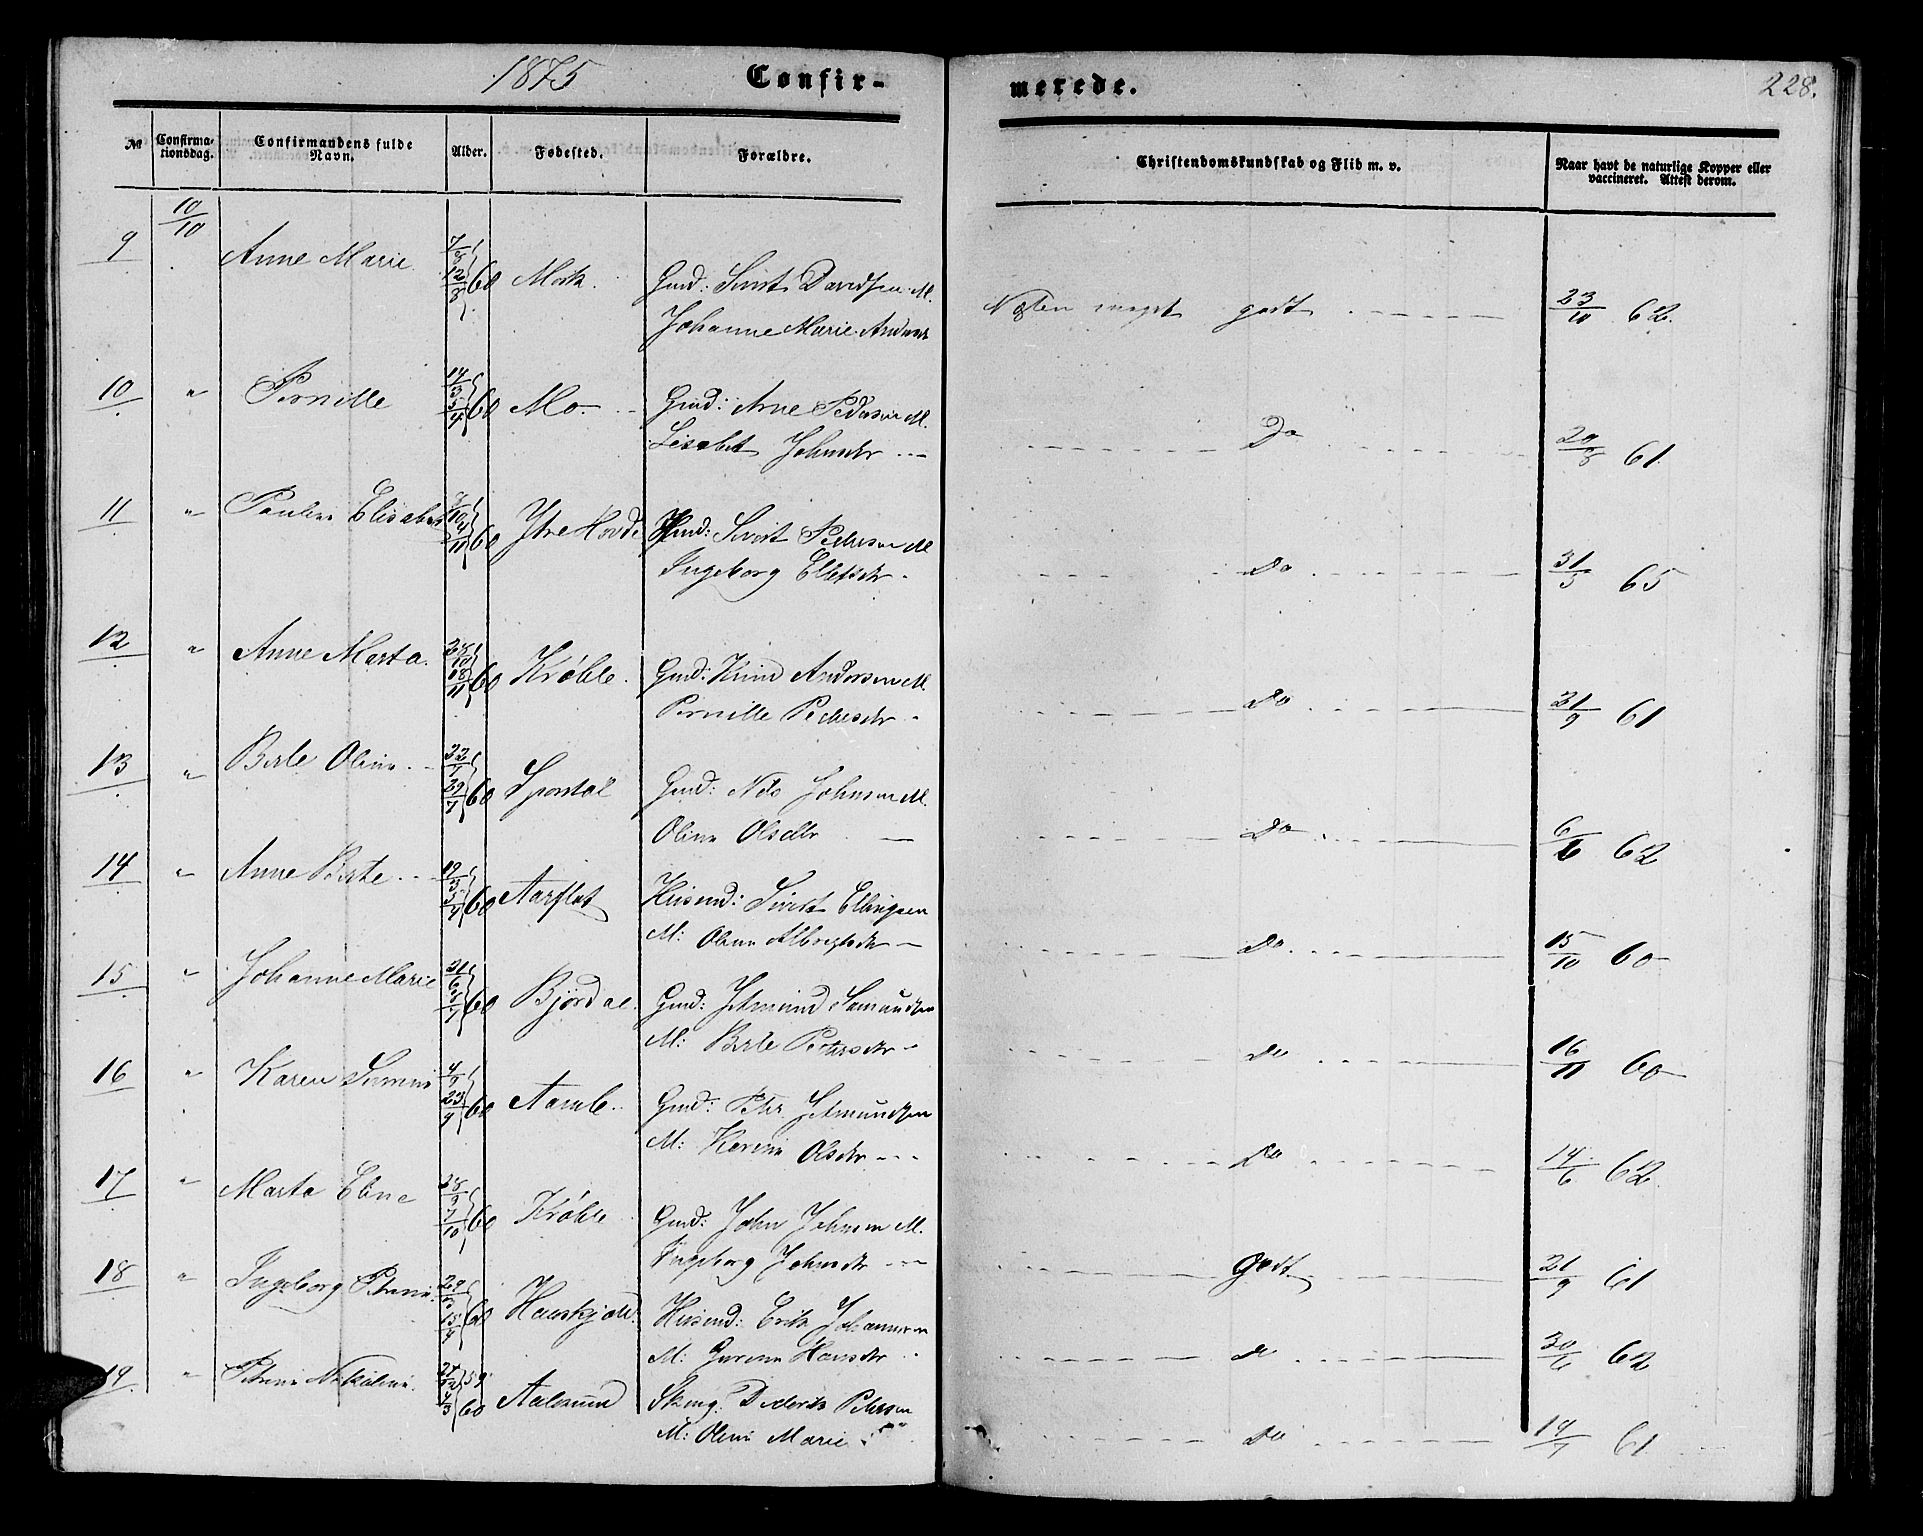 1875 Confir-
merede. 228.
№ Confirmationsdag. Confirmandens fulde Navn. Alder. Fødested. Forældre.
Christendomskundskab og Flid m. v. Naar havt de naturlige Kopper eller vaccineret. Attest derom.
10/10
9 Anne Marie 7/8 12/8 60 Mork. Gmd: Sivert Davidsen M.
Johanne Marie Anders
Næsten meget godt 23/10 62.
10 " Pernille 14/3 5/4 60 Mo. Gmd: Arne Pedersen M.
Lisabet Johnsdtr
Do 20/8 61.
11 " Pauline Elisabet 60 Ytre Hovde Gmd: Sivert Pedersen M
Ingeborg Elletsdtr
Do 31/5 65
12 " Anne Marta. 28/10 18/11 60 Krøble. Gmd: Knud Andersen M.
Pernille Pedersdtr
Do 21/9 61
13 " Berte Oline 22/7 29/7 60 Gmd: Nils Johnsen M.
Oline Olsdtr
Do 6/6 62
14 " Anne Berte 19/3 5/4 60 Aarflot Husmd: Sivert Ellingsen
M: Oline Albregtsdtr
Do 15/10 60
15 " Johanne Marie 60 Bjørdal. Gmd: Jetmund Samundsen
M: Berte Petersdtr
Do 16/11 60
16 " Karen 4/9 23/9 60 Gmd: Peter Jetmundsen
M: Karen Olsdtr
Do 14/6 62.
17 " Marta Eline 28/9 7/10 60 Krøble Gmd: John Johnsen M.
Ingeborg Johnsdtr
Godt 21/9 61
18 " Ingeborg Petrine 60 Husmd: Erik Johannesen
M: Hansdtr
do 30/6 62
19. " Petrine Nikoline. 59 60 Aalesund Petersen
M: Oline Marie
Do 19/7 61